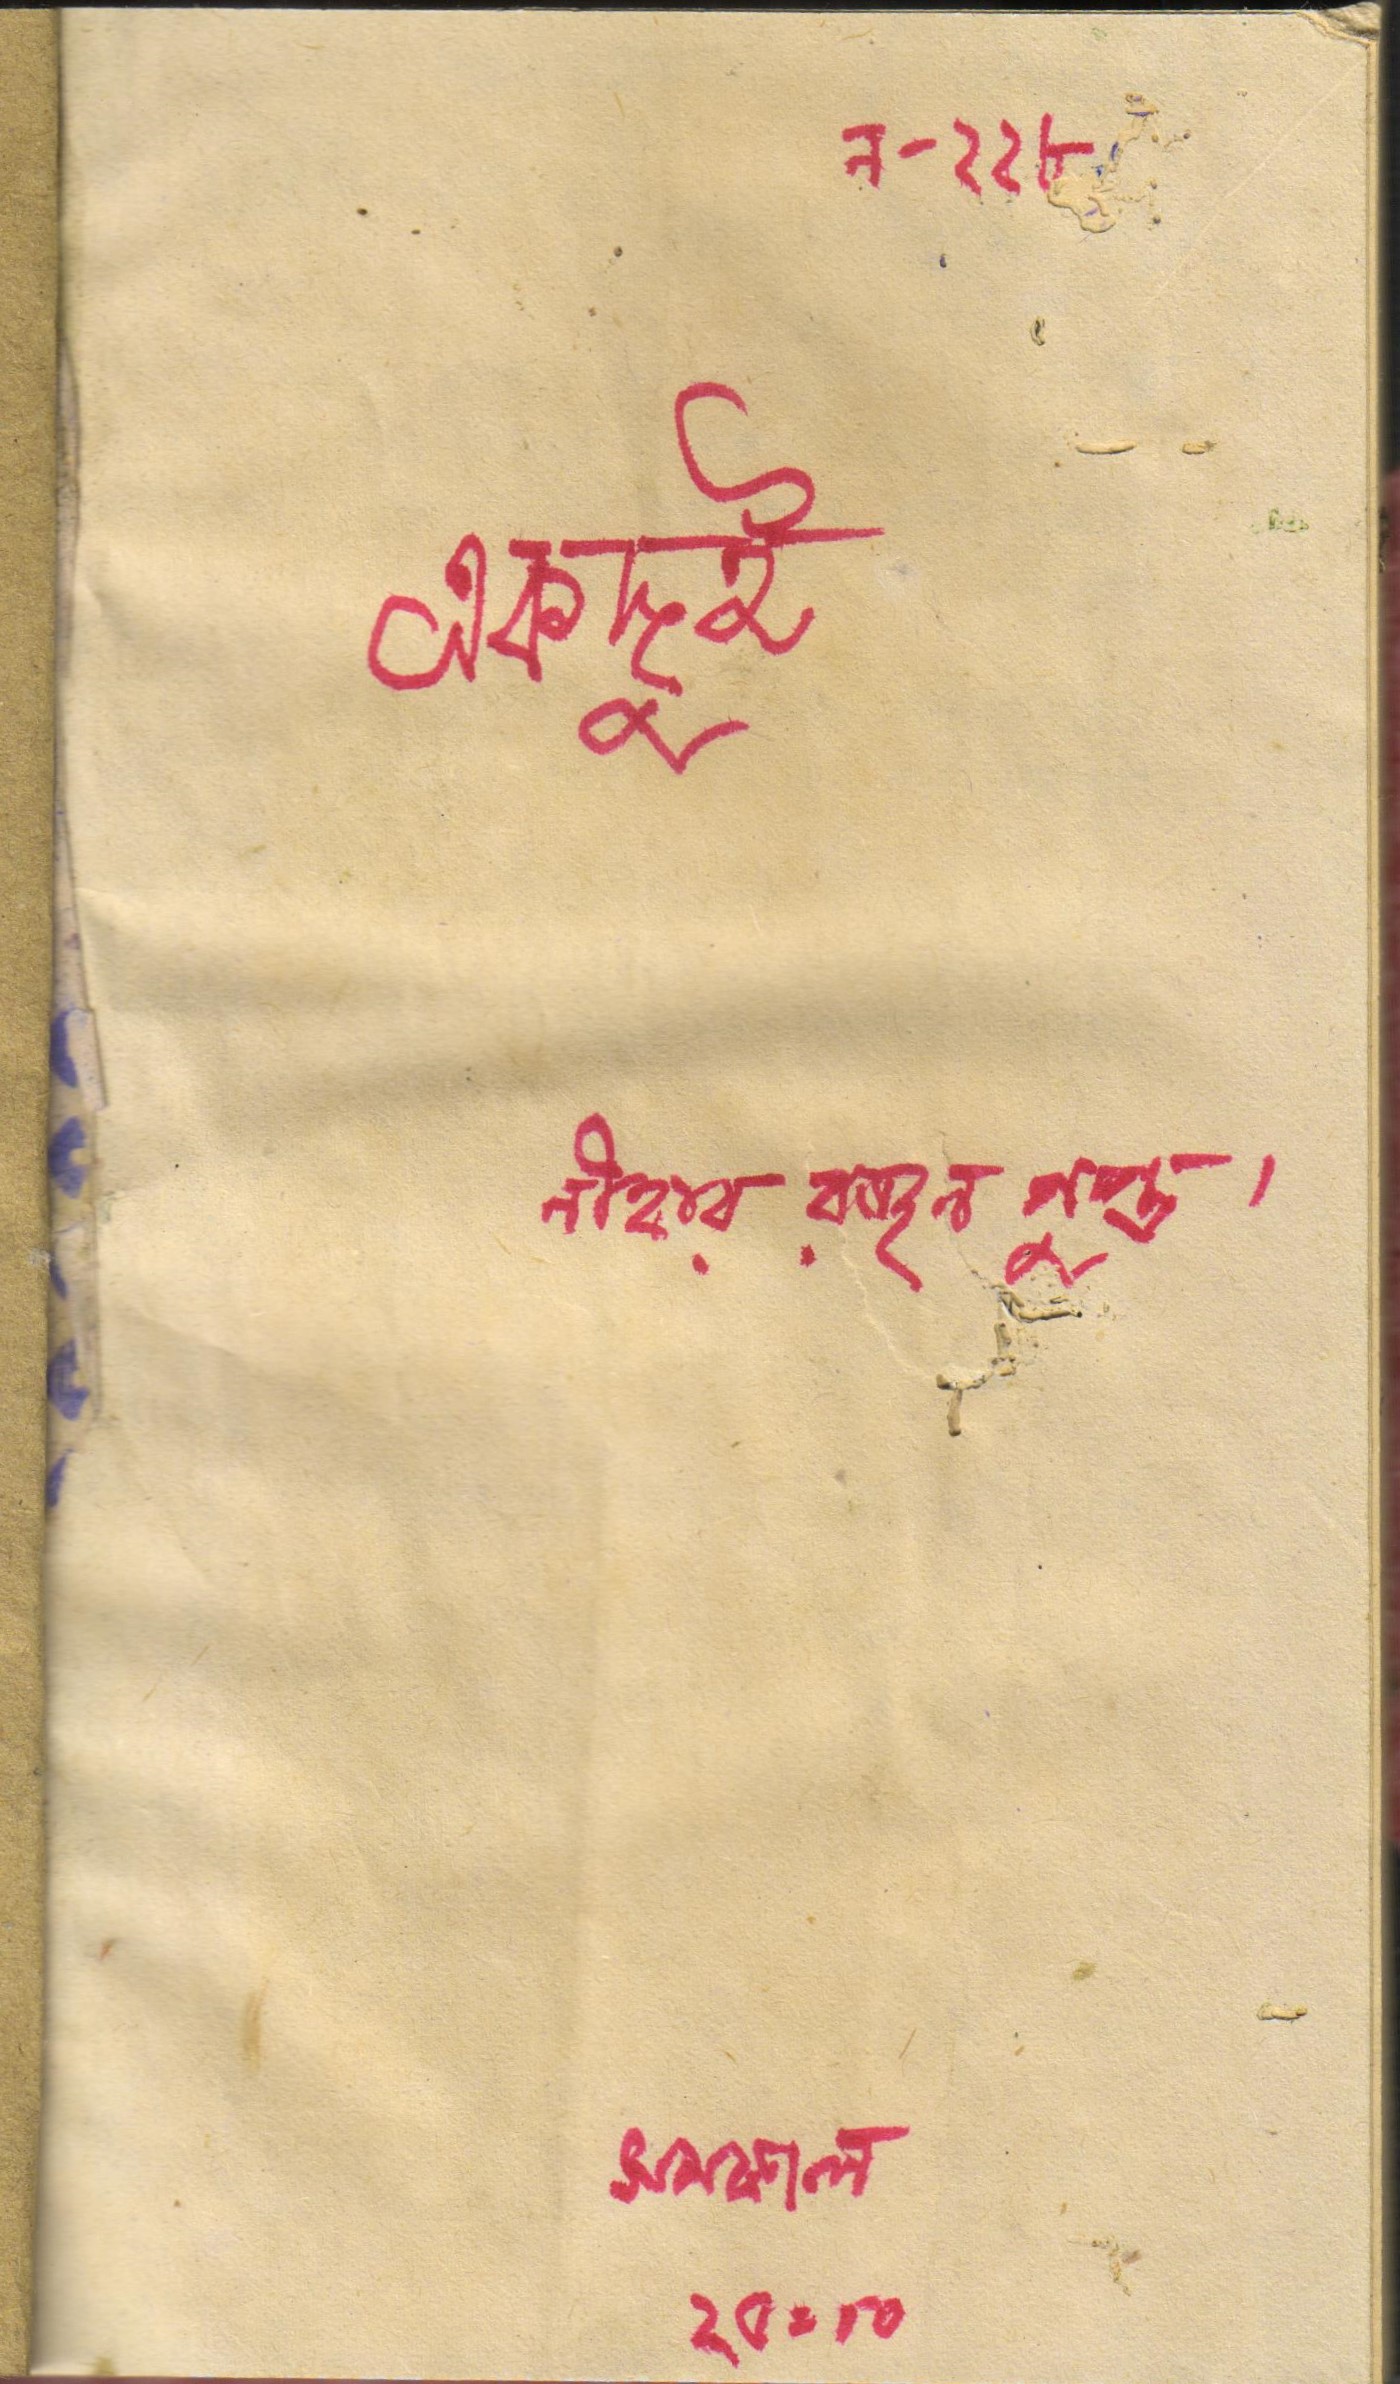 ন-২২৮
এক দুই
নীহার রঞ্জন গুপ্ত।
সমকাল
২৫=৮০